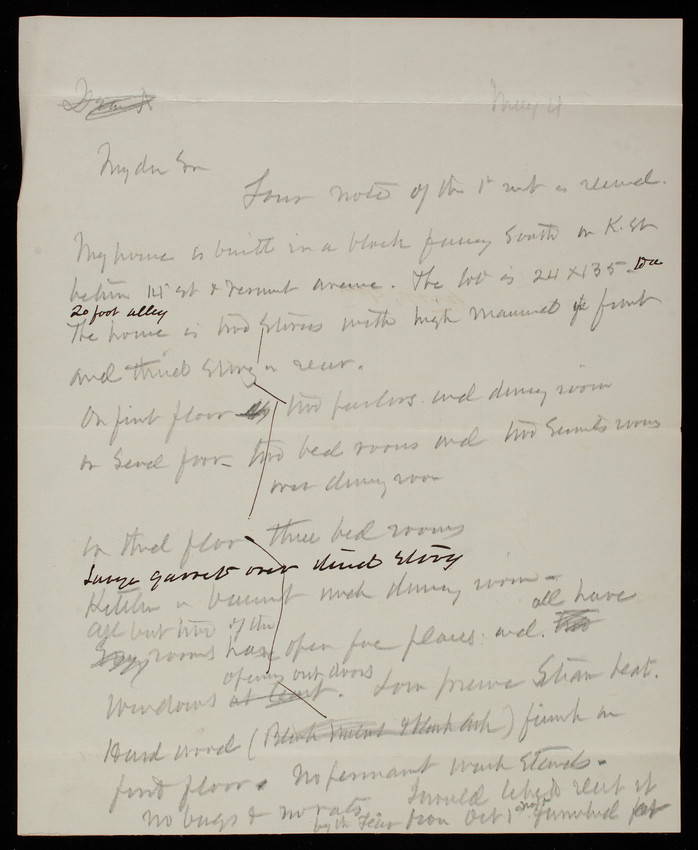 May 4
My dr Sir
Your note of the 1st inst is received.
My house is built in a block facing South on K. St
between 14th st & Vermont avenue. The lot is 24 x 135 to a
20 foot alley
The house is two stories with high mansard in front
and third story in rear.
On first floor two parlors and dining room
on second floor two bed rooms and two servants rooms
over dining room
on third floor three bed rooms
Large garret over third story
Kitchen in basement under dining room
all but two of the rooms have open fire places and all have
windows opening out doors. Low pressure steam heat.
Hard wood ( ) finish on
first floor. No permanent wash stands.
no bugs & no rats. I would like to rent it
by the year from Oct 1 next furnished